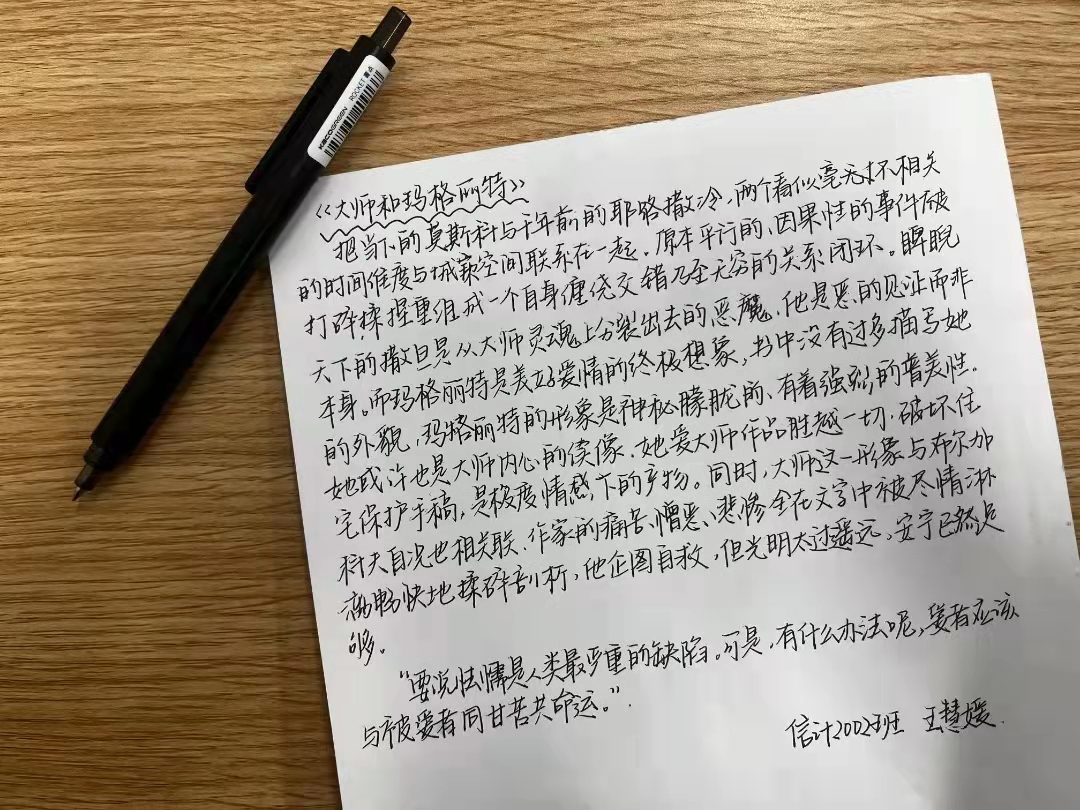 KACOGREEN ROCKET 重点
《大师和玛格丽特》
把当下的莫斯科与千年前的耶路撒冷,两个看似毫无相关
的时间维度与城寨空间联系在一起。原本平行的、因果性的事件被
打碎揉捏重组成一个自身缠绕交错乃至无穷的关系闭环。睥睨
天下的撒旦是从大师灵魂上分裂出去的恶魔,他是恶的见证而非
本身。而玛格丽特是美好爱情的终极想象,书中没有过多描写她
的外貌,玛格丽特的形象是神秘朦胧的、有着强烈的普美性。
她或许也是大师内心的续像,她爱大师作品胜越一切,破坏住
宅保护手稿,是极度情感下的产物。同时,大师这一形象与布尔加
科夫自况也相关联,作家的痛苦、憎恶、悲惨全在文字中被尽情淋
漓畅快地揉碎剖析,他企图自救,但光明太过遥远,安宁已然足
够。
“要说怯懦是人类最严重的缺陷。可是,有什么办法呢,爱者应该
与被爱者同甘苦共命运。”
信计2002班 王慧媛